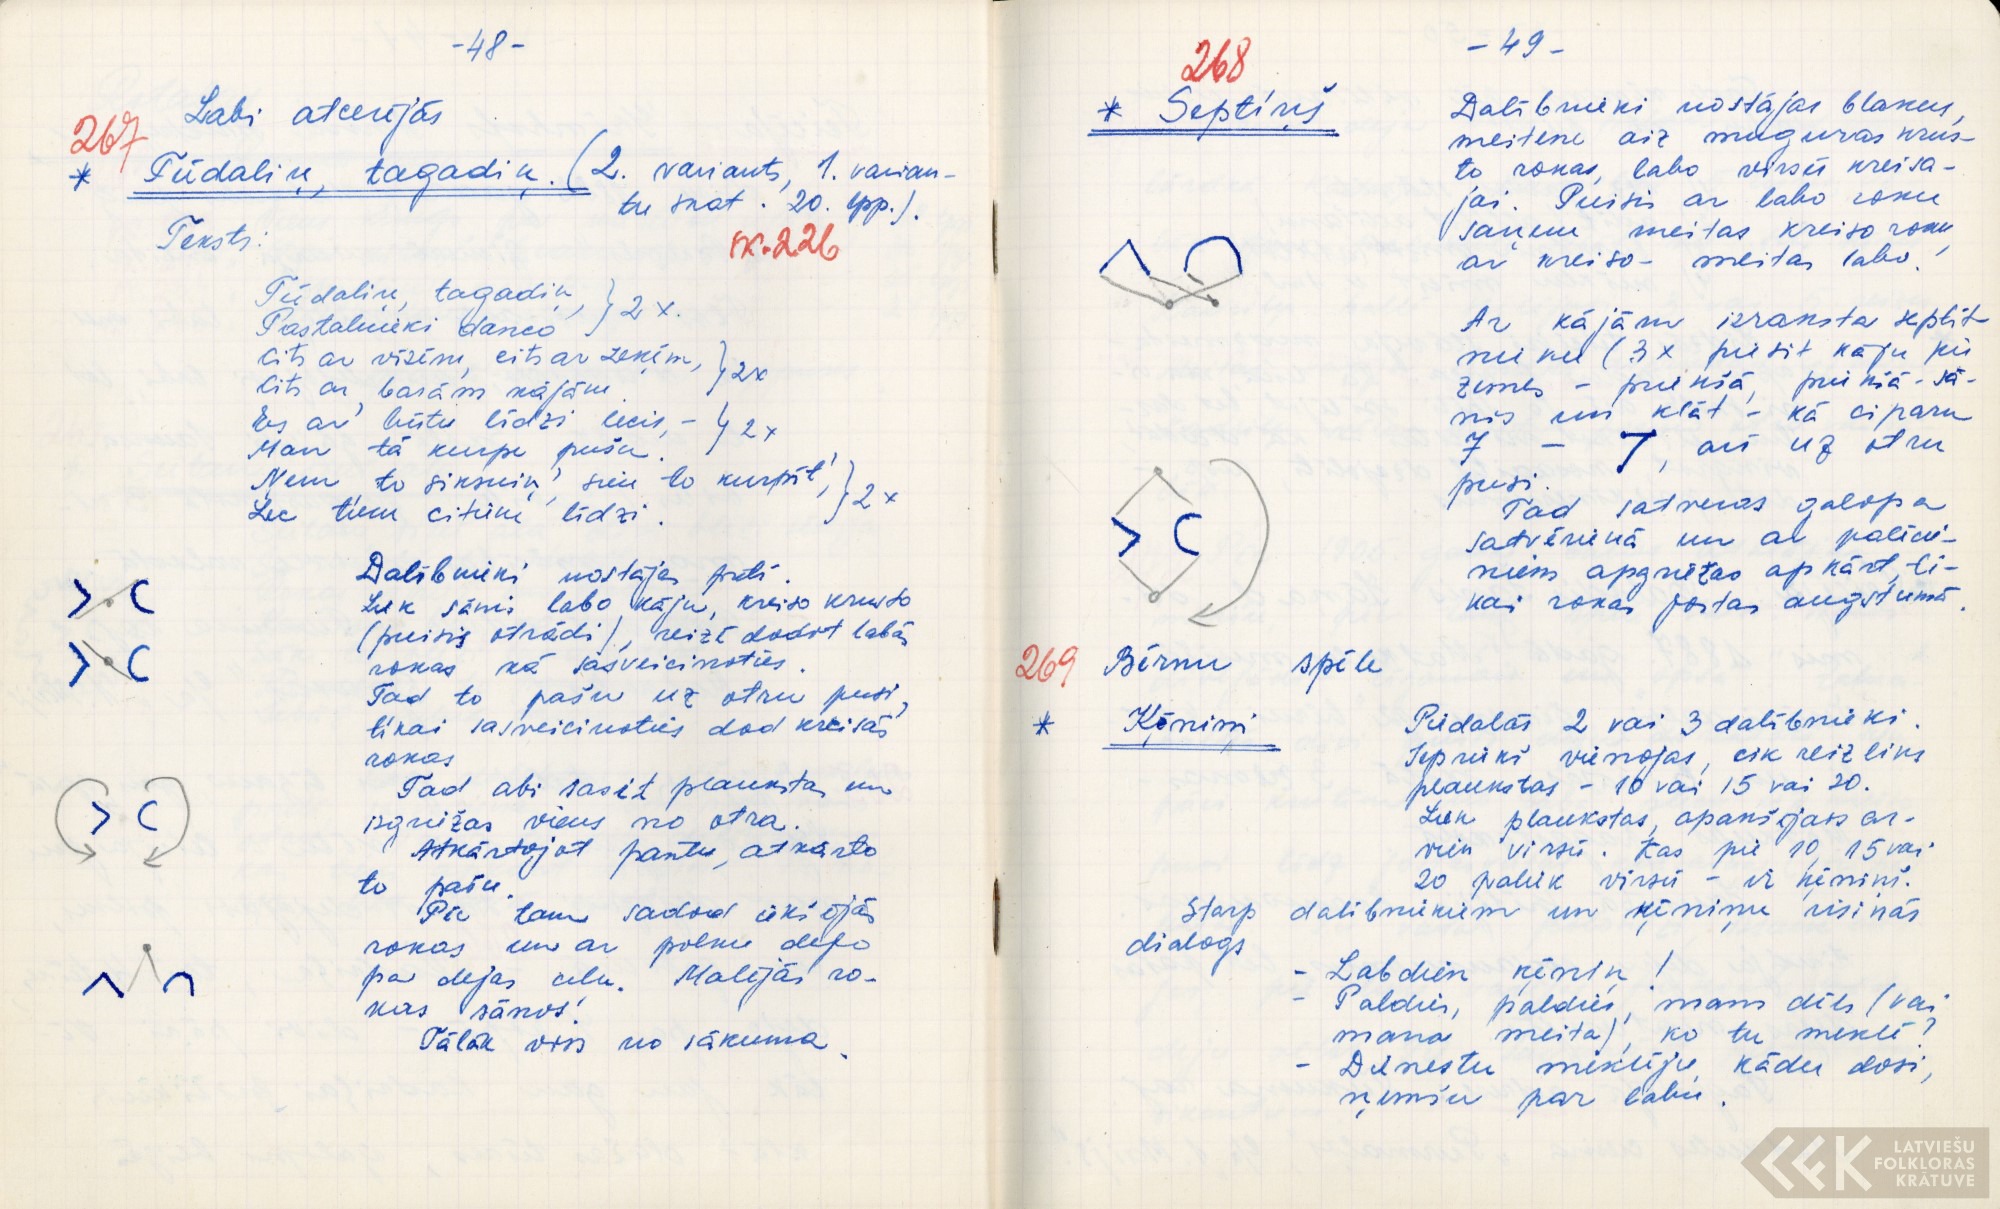 -48-
Labi atcerējās
267
* Tūdaliņ, tagadiņ. (2. variants, 1. varian-
tu skat. 20. lpp.).
sk. 226
Teksts:
Tūdaliņ, tagadiņ, } 2 x.
Pastalnieki dancō
Cits ar vīzēm, cits ar zeķēm, } 2x
Cits ar basām kājām.
Es ar' būtu līdzi lecis, - } 2x
Man tā kurpe pušu.
Ņem to siksniņ', sien to kurpīt', } 2x
Lec tiem citiem līdzi.
Dalībnieki nostājas pretī.
Liek sānis labo kāju, kreiso krusto
(puisis otrādi), reizē dodot labās
rokas kā sasveicinoties.
Tad to pašu uz otru pusi,
tikai sasveicinoties dod kreisās
rokas
Tad abi sasit plaukstas un
izgriežas viens no otra.
Atkārtojot pantu, atkārto
to pašu.
Pie tam sadod iekšējās
rokas un ar polku dejo
pa dejas ceļu. Malējās ro-
kas sānos!
Tālāk viss no sākuma.
-49-
268
* Septiņš
Dalībnieki nostājas blakus,
meitene aiz muguras krus-
to rokas, labo virsū kreisa-
jai. Puisis ar labo roku
saņem meitas kreiso roku,
ar kreiso - meitas labo!
Ar kājām izraksta septīt-
nieku (3x piesit kāju pie
zemes - priekšā, priekšā-sā-
nis un klāt - kā ciparu
7 - 7, arī uz otru
pusi.
Tad satveras galopa
satvērienā un ar palēcie-
niem apgriežas apkārt, ti-
kai rokas jostas augstumā.
269 Bērnu spēle
* Ķēniņi
Piedalās 2 vai 3 dalībnieki.
Iepriekš vienojas, cik reiz liks
plaukstas - 10 vai 15 vai 20.
Liek plaukstas, apakšējais ar-
vien virsū. Kas pie 10, 15 vai
20 paliek virsū - ir ķēniņš.
Starp dalībniekiem un ķēniņu risinās
dialogs
- Labdien ķēniņ!
- Paldies, paldies, mans dēls (vai
mana meita), ko tu meklē?
- Dienestu meklēju, kādu dosi,
ņemšu par labu.
LATVIEŠU
FOLKLORAS
KRĀTUVE